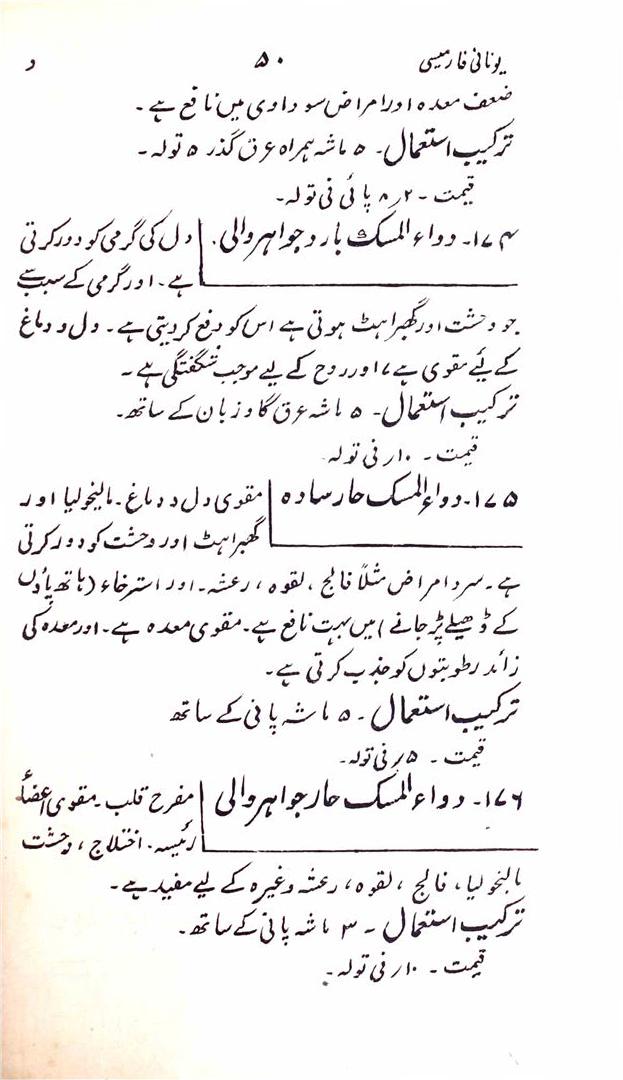 یونانی فارمیسی ۵۰ د
ضعف معدہ اور امراض سوداوی میں نافع ہے۔
ترکیب استعمال۔ ۵ ماشہ ہمراہ عرق گذر ۵ تولہ۔
قیمت۔ ۲ر ۸ پائی فی تولہ۔
۱۷۴۔ دواء المسک بارد جواہر والی۔ دل کی گرمی کو دور کرتی
ہے۔ اور گرمی کے سبب سے
جو وحشت اور گھبراہٹ ہوتی ہے اس کو دفع کر دیتی ہے۔ دل و دماغ
کے لئے مقوی ہے، اور روح کے لیے موجب شگفتگی ہے۔
ترکیب استعمال۔ ۵ ماشہ عرق گاو زبان کے ساتھ۔
قیمت۔ ۱۰ر فی تولہ
۱۷۵۔ دواء المسک حار سادہ مقوی دل و دماغ۔ مالیخولیا اور
گھبراہٹ اور وحشت کو دور کرتی
ہے۔ سرد امراض مثلاً فالج، لقوہ، رعشہ۔ اور استرخاء (ہاتھ پاؤں
کے ڈھیلے پڑ جانے) میں بہت نافع ہے۔ مقوی معدہ ہے۔ اور معدہ کی
زائد رطوبتوں کو جذب کرتی ہے۔
ترکیب استعمال۔ ۵ ماشہ پانی کے ساتھ
قیمت۔ ۵ر فی تولہ۔
۱۷۶۔ دواء المسک حار جواہر والی مفرح قلب۔ مقوی اعضائے
رئیسہ۔ اختلاج، وحشت
مالیخولیا، فالج، لقوہ، رعشہ وغیرہ کے لیے مفید ہے۔
ترکیب استعمال۔ ۳ ماشہ پانی کے ساتھ۔
قیمت۔ ۱۰ر فی تولہ۔